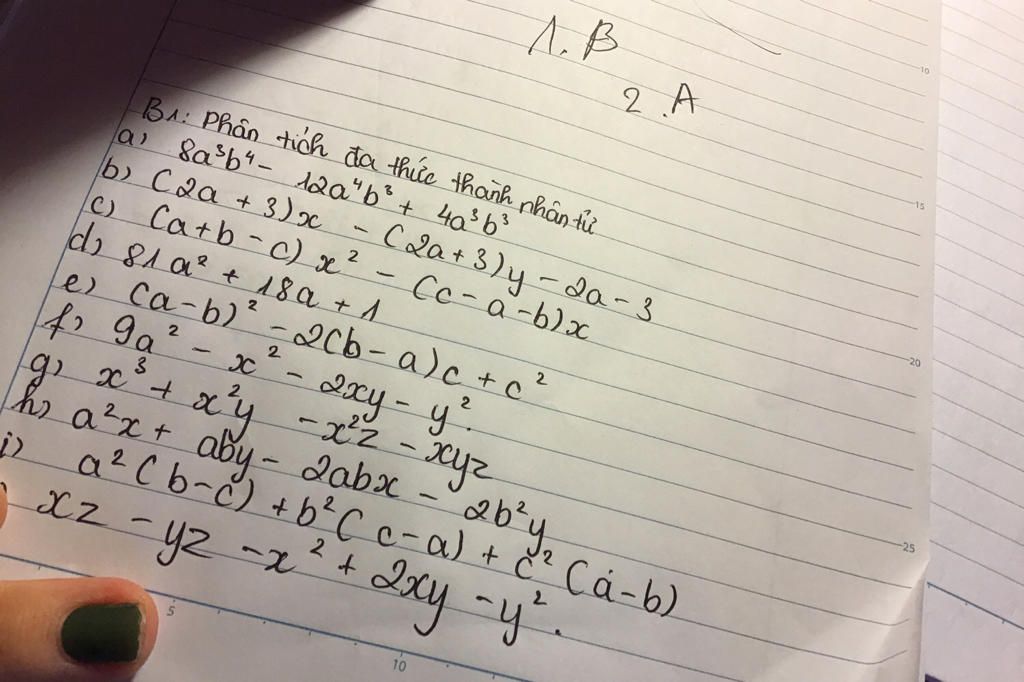 1. B
2. A
B1: Phân tích đa thức thành nhân tử
a) 8a³b⁴ - 12a⁴b³ + 4a³b³
b) (2a + 3)x - (2a+3)y - 2a - 3
c) (a+b-c)x² - (c-a-b)x
d) 81a² + 18a + 1
e) (a-b)² - 2(b-a)c + c²
f) 9a² - x² - 2xy - y².
g) x³ + x²y - x²z - xyz
h) a²x + aby - 2abx - 2b²y
i) a²(b-c) + b²(c-a) + c²(a-b)
xz - yz - x² + 2xy - y².
10
15
20
25
5
10